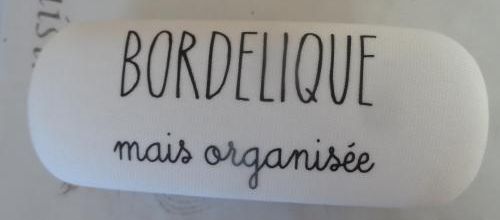 BORDELIQUE
mais organisée